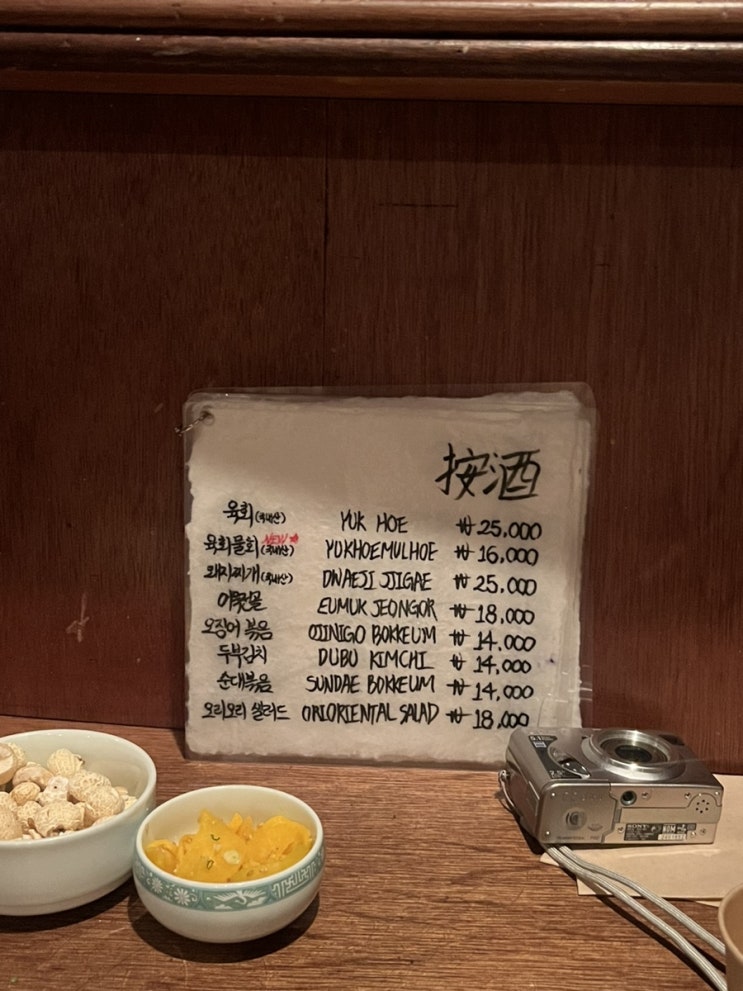 按酒
육회(국내산) YUK HOE ₩25,000
NEW
육회물회(국내산) YUKHOEMULHOE ₩16,000
돼지찌개(국내산) DWAEJI JJIGAE ₩25,000
어묵전골 EUMUK JEONGOR ₩18,000
오징어 볶음 OJINIGO BOKKEUM ₩14,000
두부김치 DUBU KIMCHI ₩14,000
순대볶음 SUNDAE BOKKEUM ₩14,000
오리오리 샐러드 ORIORIENTAL SALAD ₩18,000
5.1
SONY